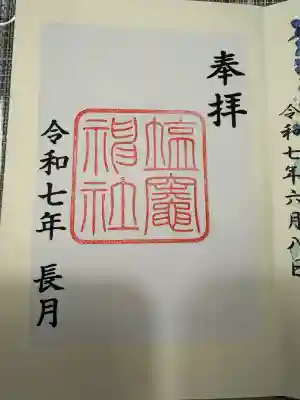 奉拝
塩竈神社
令和七年 長月
令和七年六月八日